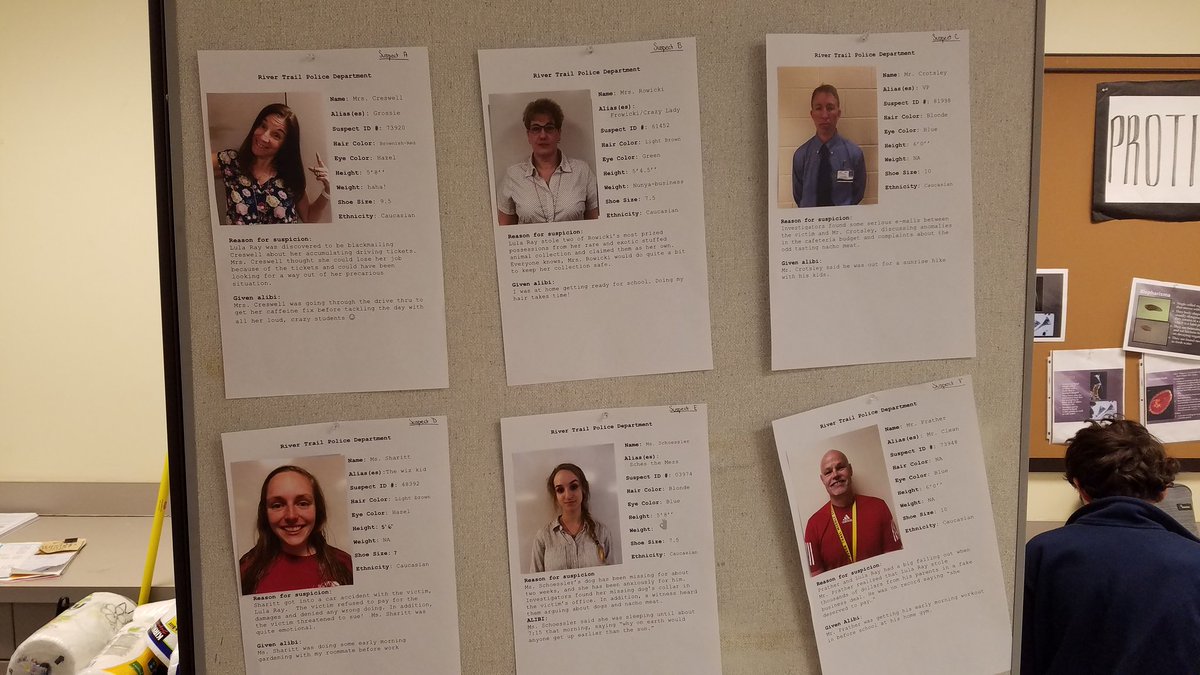 Suspect A
River Trail Police Department
Name: Mrs. Creswell
Alias(es): Grossie
Suspect ID #: 73920
Hair Color: Brownish-Red
Eye Color: Hazel
Height: 5'8''
Weight: haha!
Shoe Size: 9.5
Ethnicity: Caucasian
Reason for suspicion:
Lula Ray was discovered to be blackmailing
Creswell about her accumulating driving tickets.
Mrs. Creswell thought she could lose her job
because of the tickets and could have been
looking for a way out of her precarious
situation.
Given alibi:
Mrs. Creswell was going through the drive thru to
get her caffeine fix before tackling the day with
all her loud, crazy students ☺
Suspect B
River Trail Police Department
Name: Mrs. Rowicki
Alias(es):
Prowicki/Crazy Lady
Suspect ID #: 61452
Hair Color: Light Brown
Eye Color: Green
Height: 5'4.5''
Weight: Nunya-business
Shoe Size: 7.5
Ethnicity: Caucasian
Reason for suspicion:
Lula Ray stole two of Rowicki's most prized
possessions from her rare and exotic stuffed
animal collection and claimed them as her own.
Everyone knows, Mrs. Rowicki would do quite a bit
to keep her collection safe.
Given alibi:
I was at home getting ready for school. Doing my
hair takes time!
Suspect C
River Trail Police Department
Name: Mr. Crotsley
Alias(es): VP
Suspect ID #: 81998
Hair Color: Blonde
Eye Color: Blue
Height: 6'0''
Weight: NA
Shoe Size: 10
Ethnicity: Caucasian
Reason for suspicion:
Investigators found some serious e-mails between
the victim and Mr. Crotsley, discussing anomalies
in the cafeteria budget and complaints about the
odd tasting nacho meat.
Given alibi:
Mr. Crotsley said he was out for a sunrise hike
with his kids.
Suspect D
River Trail Police Department
Name: Ms. Sharitt
Alias(es): The wiz kid
Suspect ID #: 48392
Hair Color: Light Brown
Eye Color: Hazel
Height: 5'6"
Weight: NA
Shoe Size: ?
Ethnicity: Caucasian
Reason for suspicion:
Sharitt got into a car accident with the victim,
Lula Ray. The victim refused to pay for the
damages and denied any wrong doing. In addition,
the victim threatened to sue! Ms. Sharitt was
quite emotional.
Given alibi:
Ms. Sharitt was doing some early morning
gardening with my roommate before work
Suspect E
River Trail Police Department
Name: Ms. Schoessler
Alias(es):
Sches the Mess
Suspect ID #: 03974
Hair Color: Blonde
Eye Color: Blue
Height: 5'8''
Weight:
Shoe Size: 7.5
Ethnicity: Caucasian
Reason for suspicion
Ms. Schoessler's dog has been missing for about
two weeks, and she has been anxiously for him.
Investigators found her missing dog's collar in
the victim's office. In addition, a witness heard
them arguing about dogs and nacho meat.
ALIBI:
Ms. Schoessler said she was sleeping until about
7:15 that morning, saying "why on earth would
anyone get up earlier than the sun."
Suspect F
River Trail Police Department
Name: Mr. Prather
Alias(es): Mr. Clean
Suspect ID #: 73948
Hair Color: NA
Eye Color: Blue
Height: 6'0''
Weight: NA
Shoe Size: 10
Ethnicity: Caucasian
adidas
Reason for suspicion:
Prather and Lula Ray had a big falling out when
Prather realized that Lula Ray stole
thousands of dollars from his parents in a fake
business deal. He was on record saying "She
deserved to pay."
Given Alibi
Mr. Prather was getting his early morning workout
in before school at his home gym.
PROTI
Blepharisma